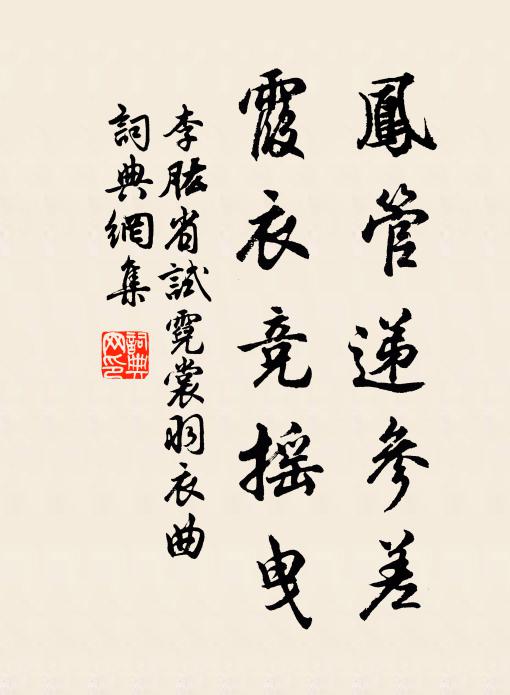 鳳管递參差
霞衣竞摇曳
李肱省試霓裳羽衣曲
詞典網集
詞典网印